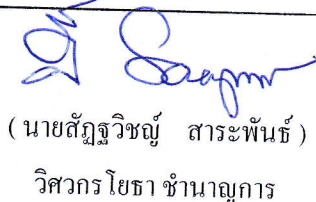 ( นายสัฏฐวิชญ์ สาระพันธ์ )
วิศวกรโยธา ชำนาญการ